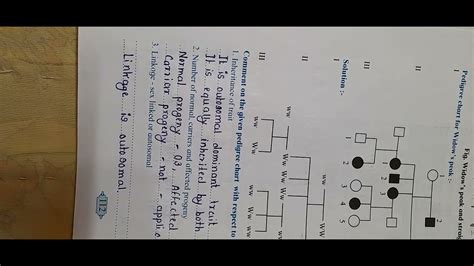 Fig. Widow's peak and
Pedigree chart for Widow's peak :-
I
1
2
II
1
2
3
4
5
III
1
2
Solution :-
I
Ww
ww
II
III
ww
Ww
Comment on the given pedigree chart with respect to
1. Inheritance of trait
It is autosomal dominant trait
It is equally Inherited by both
2. Number of normal, carriers and affected progeny
Normal progeny - 03, Affected
Carriar progeny - not - applic
3. Linkage - sex linked or autosomal
Linkage is autosomal
112